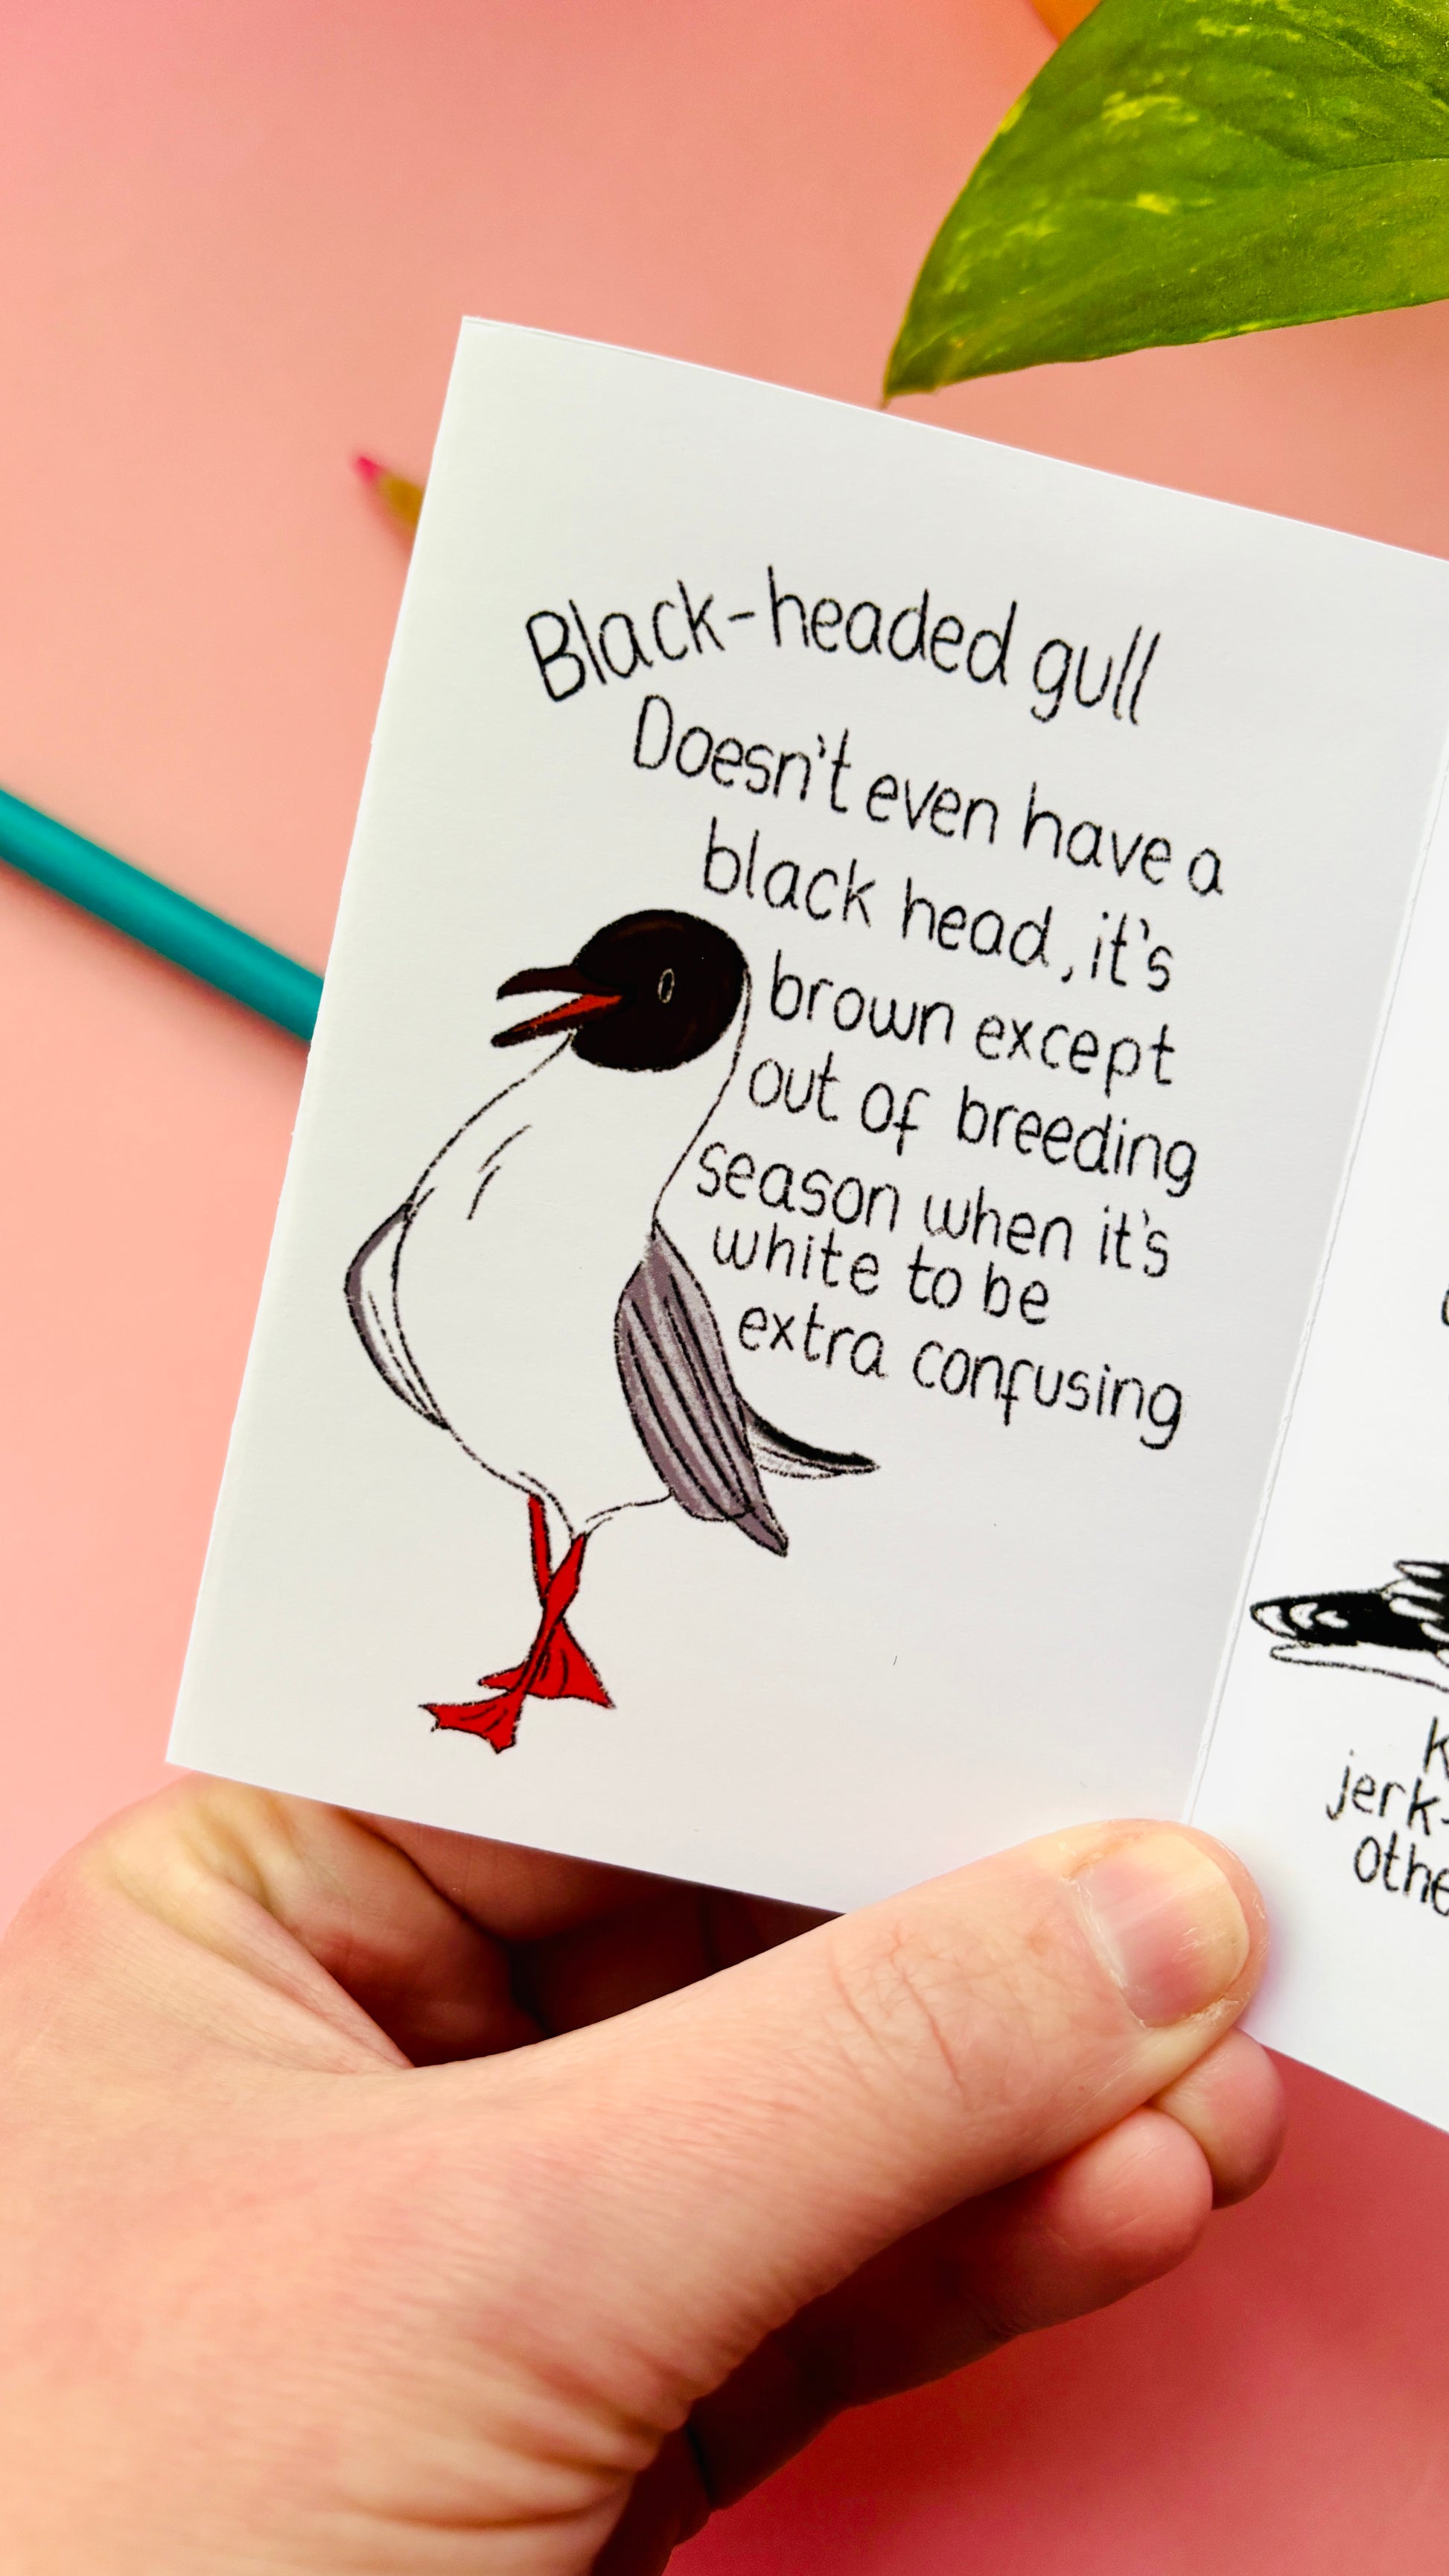 Black-headed gull
Doesn't even have a
black head, it's
brown except
out of breeding
season when it's
white to be
extra confusing